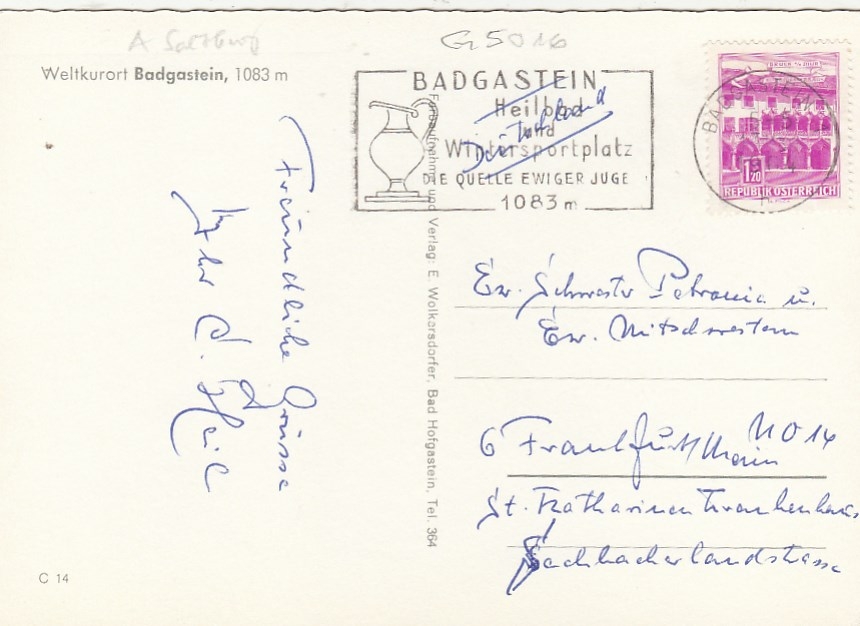 A Salzburg
G 5016
Weltkurort Badgastein, 1083 m
BADGASTEIN
Heilbad
und
Wintersportplatz
DIE QUELLE EWIGER JUGE
1083 m
Deutschland
BADGASTEIN
BRUCK A. D. MUR
1.20
REPUBLIK ÖSTERREICH
Freundliche Grüsse
Ihr
Farbaufnahme und Verlag: E. Wolkersdorfer, Bad Hofgastein, Tel. 364
Ew. Schwester Petronia u.
Ew. Mitschwestern
6 Frankfurt/Main NO 14
St. Katharinen Krankenhaus
Seckbacherlandstrasse
C 14